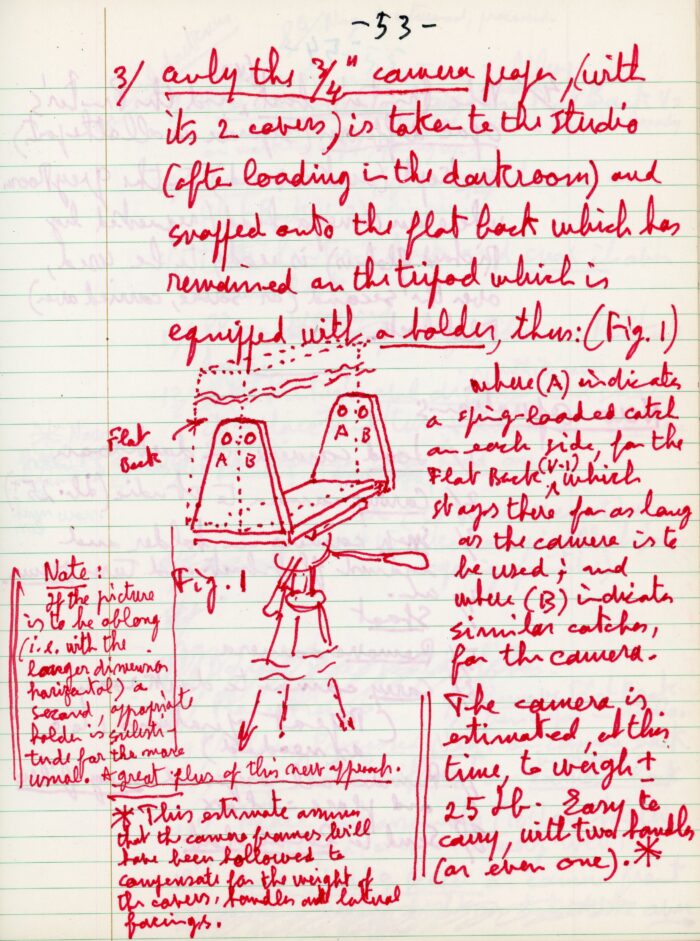 -53-
3/ only the 3/4" camera proper, (with
its 2 covers) is taken to the studio
(after loading in the darkroom) and
snapped onto the flat back which has
remained on the tripod which is
equipped with a holder, thus: (Fig. 1)
where (A) indicates
a spring-loaded catch
on each side, for the
Flat Back (V-1), which
stays there for as long
as the camera is to
be used; and
where (B) indicates
similar catches,
for the camera.
Flat
Back
A B
A B
Fig. 1
Note:
If the picture
is to be oblong
(i.e. with the
longer dimension
horizontal) a
second, appropriate
holder is substi-
tuted for the more
usual. A great plus of this new approach.
The camera is
estimated, at this
time, to weigh ±
25 lb. Easy to
carry, with two handles
(or even one).*
* This estimate assumes
that the camera frames will
have been hollowed to
compensate for the weight of
the covers, handles and lateral
facings.